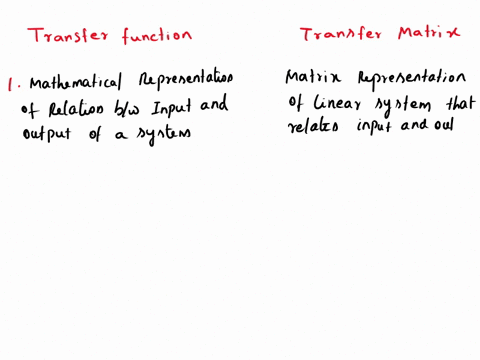 Transfer function
Transfer Matrix
1. Mathematical Representation
of Relation b/w Input and
output of a system
Matrix Representation
of linear system that
relates input and out